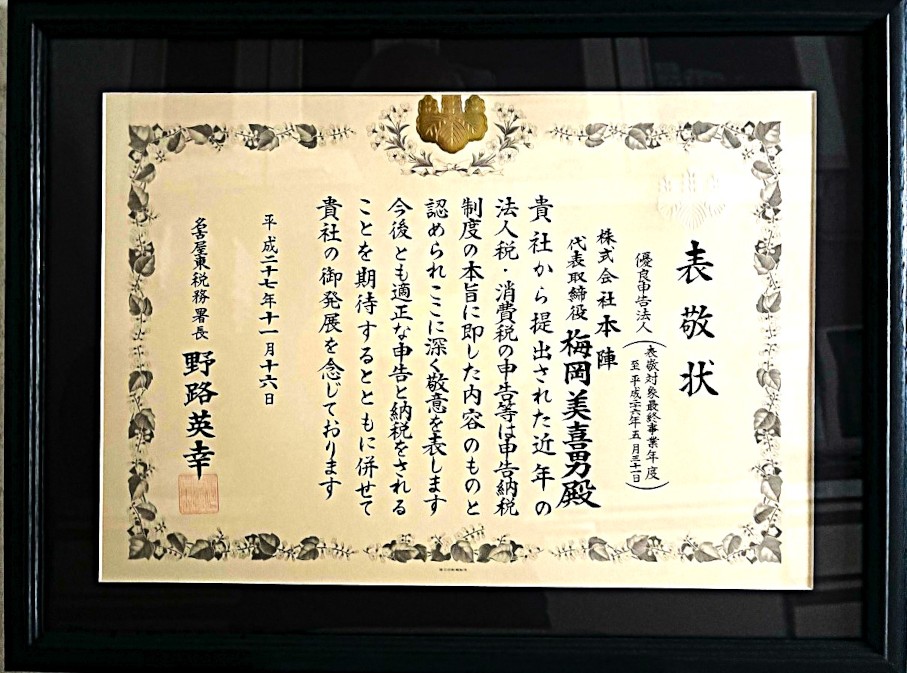 表敬状
優良申告法人
(表敬対象最終事業年度
至 平成二六年五月三十一日)
株式会社 本陣
代表取締役 梅岡美喜男殿
貴社から提出された近年の
法人税・消費税の申告等は申告納税
制度の本旨に即した内容のものと
認められここに深く敬意を表します
今後とも適正な申告と納税をされる
ことを期待するとともに併せて
貴社の御発展を念じております
平成二十七年十一月十六日
名古屋東税務署長 野路英幸